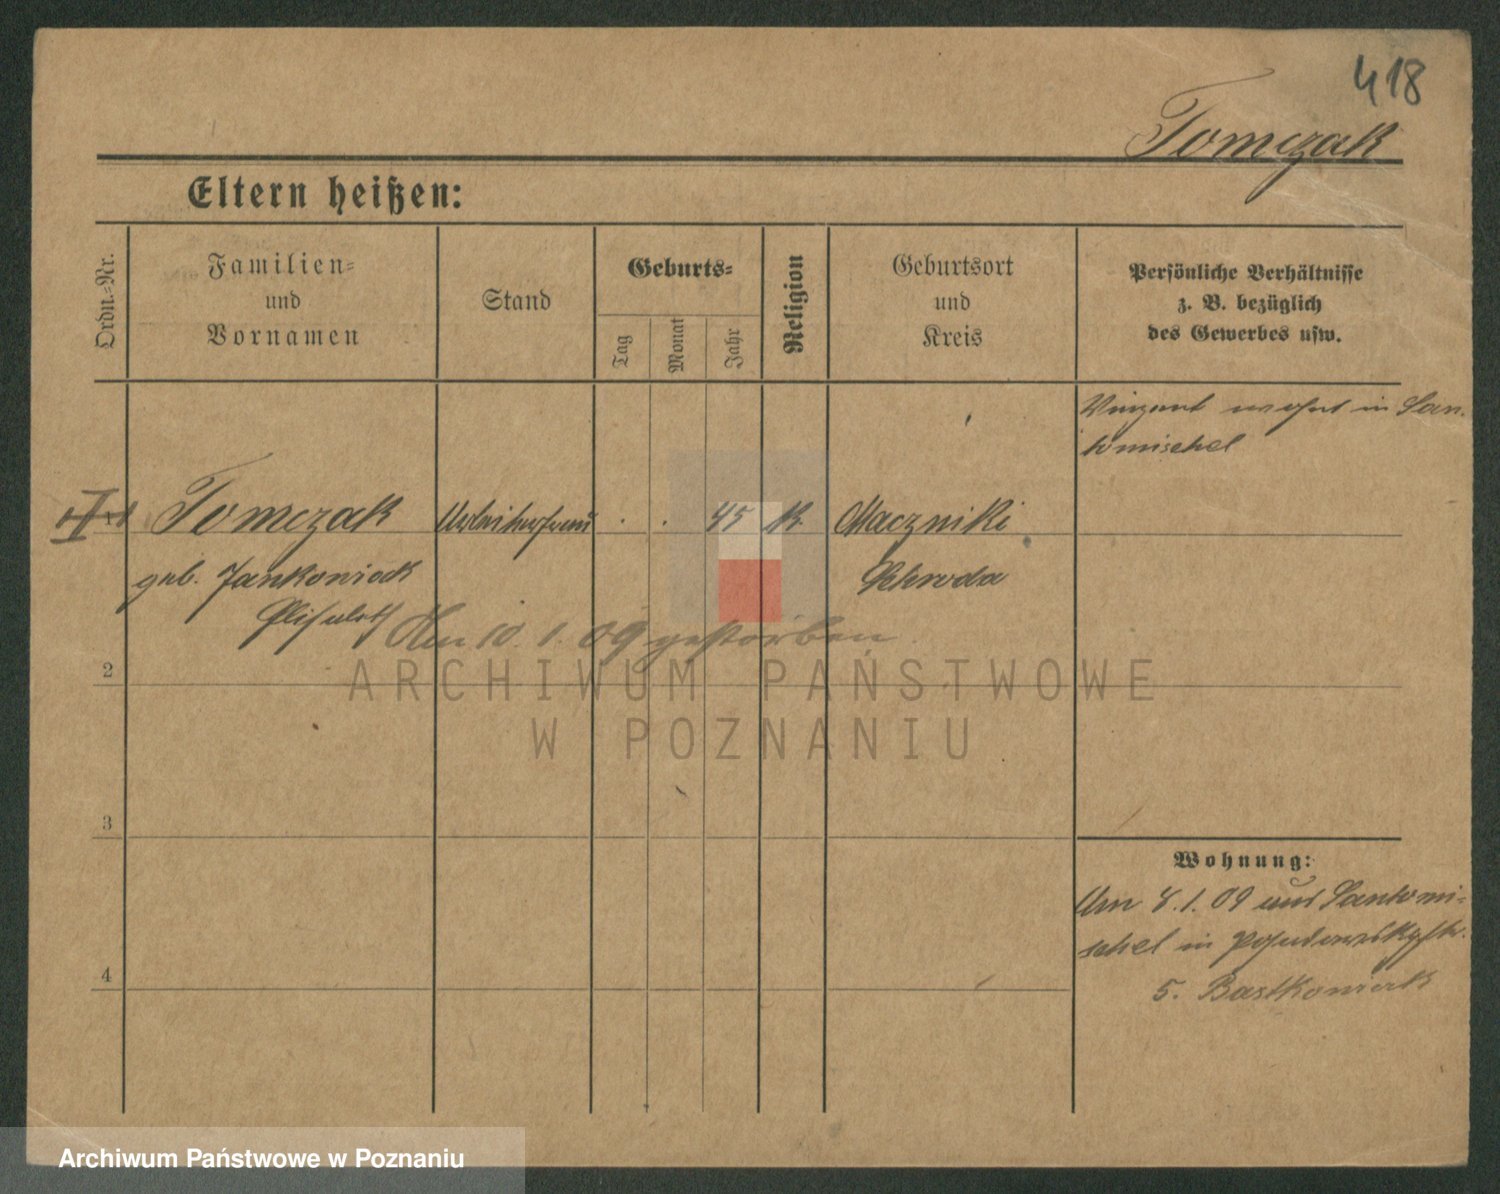 418
Tomczak
Eltern heißen:
Ordn.-Nr.
Familien-
und
Vornamen
Stand
Geburts-
Tag
Monat
Jahr
Religion
Geburtsort
und
Kreis
Persönliche Verhältnisse
z. B. bezüglich
des Gewerbes usw.
Vinzent wohnt in San-
tomischel
I Tomczak Arbeiterfrau . . 45 K. Maczniki
geb. Jankowiack Schroda
Elisabeth Am 10.1.09 gestorben
2
3
4
Wohnung:
Am 8.1.09 aus Santomi-
schel in
5. Bastkowiak
ARCHIWUM PAŃSTWOWE
W POZNANIU
Archiwum Państwowe w Poznaniu